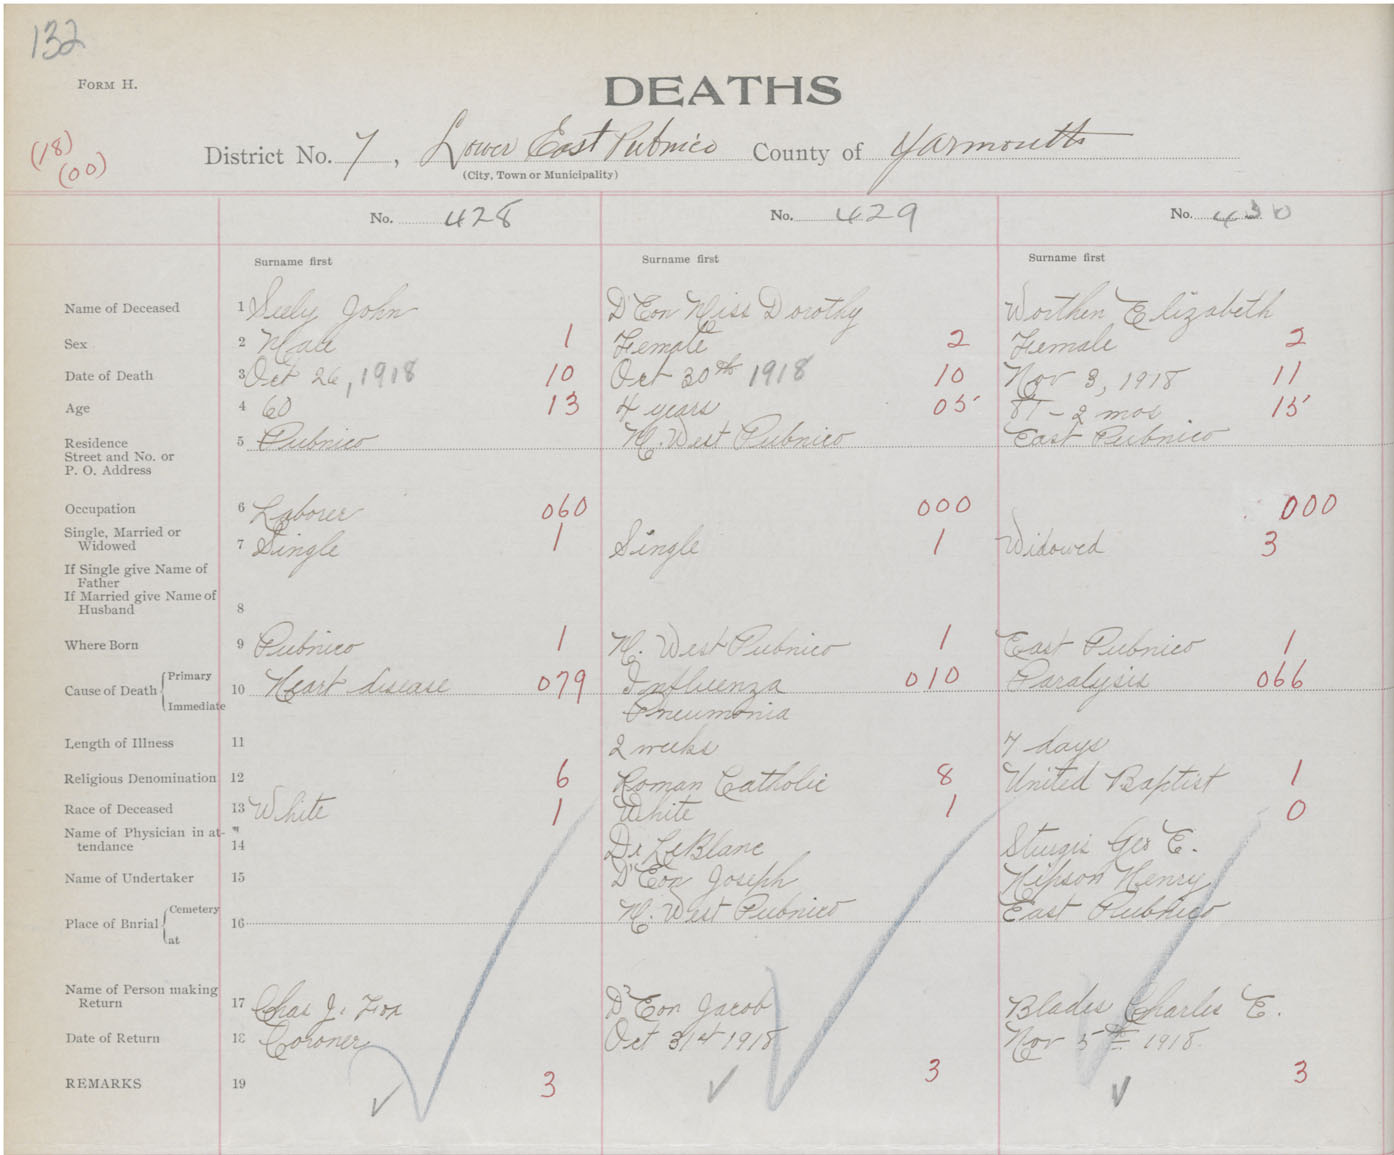 132
FORM H.
DEATHS
(18)
(00)
District No. 7, Lower East Pubnico County of Yarmouth
(City, Town or Municipality)
No. 428 No. 429 No. 430
Surname first Surname first Surname first
Name of Deceased 1 Seely John D'Eon Miss Dorothy Worthen Elizabeth
Sex 2 Male 1 Female 2 Female 2
Date of Death 3 Oct 26, 1918 10 Oct 30th 1918 10 Nov 3, 1918 11
Age 4 60 13 4 years 05 81 - 2 mos 15
Residence 5 Pubnico M. West Pubnico East Pubnico
Street and No. or
P. O. Address
Occupation 6 Laborer 060 000 000
Single, Married or
Widowed 7 Single 1 Single 1 Widowed 3
If Single give Name of
Father
If Married give Name of
Husband 8
Where Born 9 Pubnico 1 M. West Pubnico 1 East Pubnico 1
Cause of Death Primary
Immediate 10 Heart disease 079 Influenza 010 Paralysis 066
Pneumonia
Length of Illness 11 2 weeks 7 days
Religious Denomination 12 6 Roman Catholic 8 United Baptist 1
Race of Deceased 13 White 1 White 1 0
Name of Physician in at-
tendance 14 Dr LeBlanc Sturgis Geo E.
Name of Undertaker 15 D'Eon Joseph Hipson Henry
Place of Burial Cemetery
at 16 M. West Pubnico East Pubnico
Name of Person making
Return 17 Chas J. Fox D'Eon Jacob Blades Charles E.
Date of Return 18 Coroner Oct 31st 1918 Nov 5th 1918
REMARKS 19 3 3 3